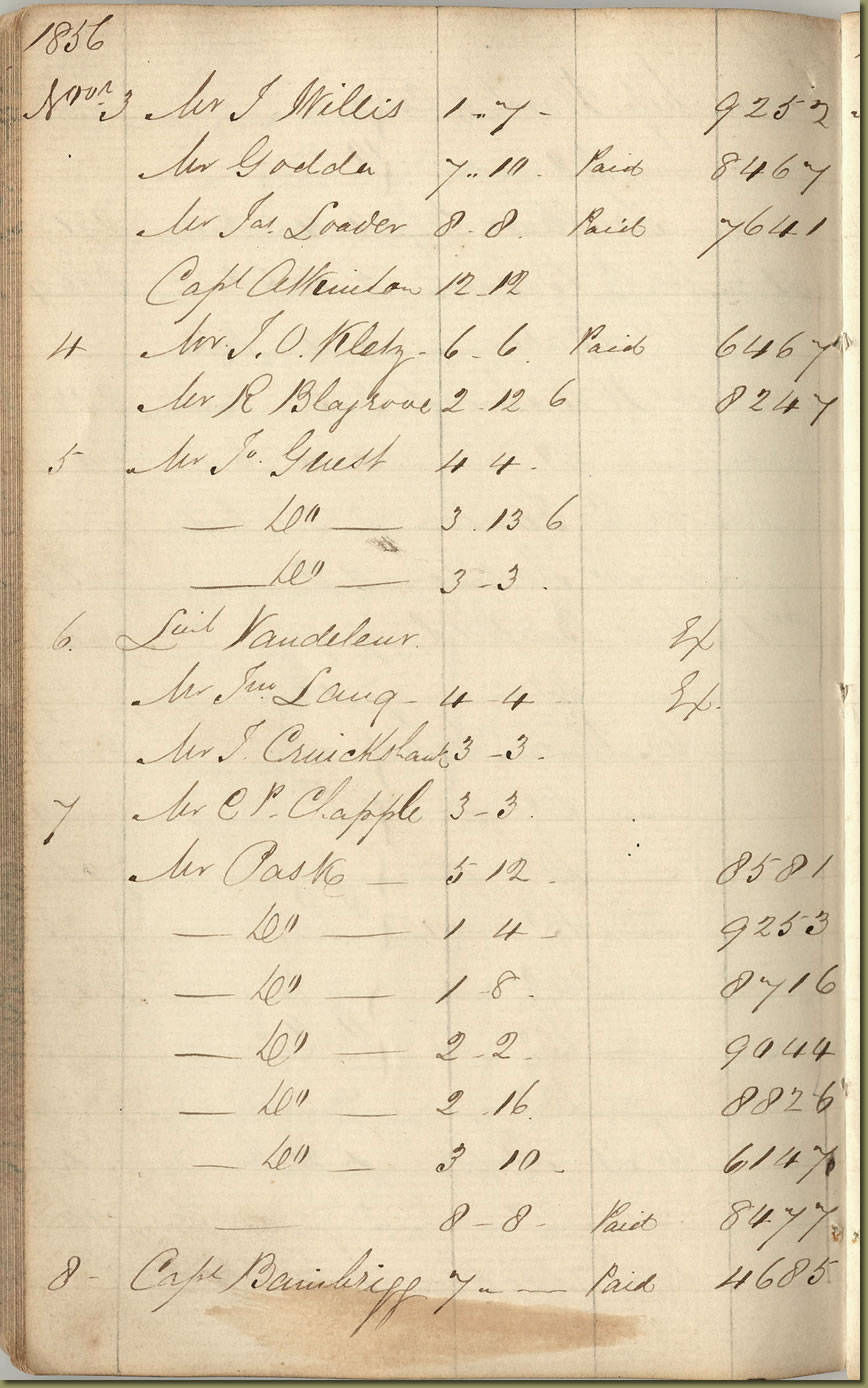 1856
Novr 3 Mr J Willis 1 .. 7 - 9252
Mr Godden 7 .. 10 . Paid 8467
Mr Jas. Loader 8 - 8 . Paid 7641
Capt Atkinson 12 - 12
4 Mr. J. O. Kletz - 6 - 6 . Paid 6467
Mr R Blagrove 2 - 12 6 8247
5 Mr Jo. Guest 4 4 -
— Do — 3 . 13 6
— Do — 3 - 3 .
6. Lieut Vandeleur. Ex
Mr Jno Lang - 4 - 4 - Ex.
Mr J. Cruickshank 3 - 3 .
7 Mr C P. Chapple 3 - 3 .
Mr Pask — 5 12 . 8581
— Do — 1 4 - 9253
— Do — 1 - 8 . 8716
— Do — 2 - 2 . 9044
— Do — 2 . 16 . 8826
— Do — 3 10 - 6147
— 8 - 8 - Paid 8477
8 - Capt Bainbrigg 7 .. — Paid 4685